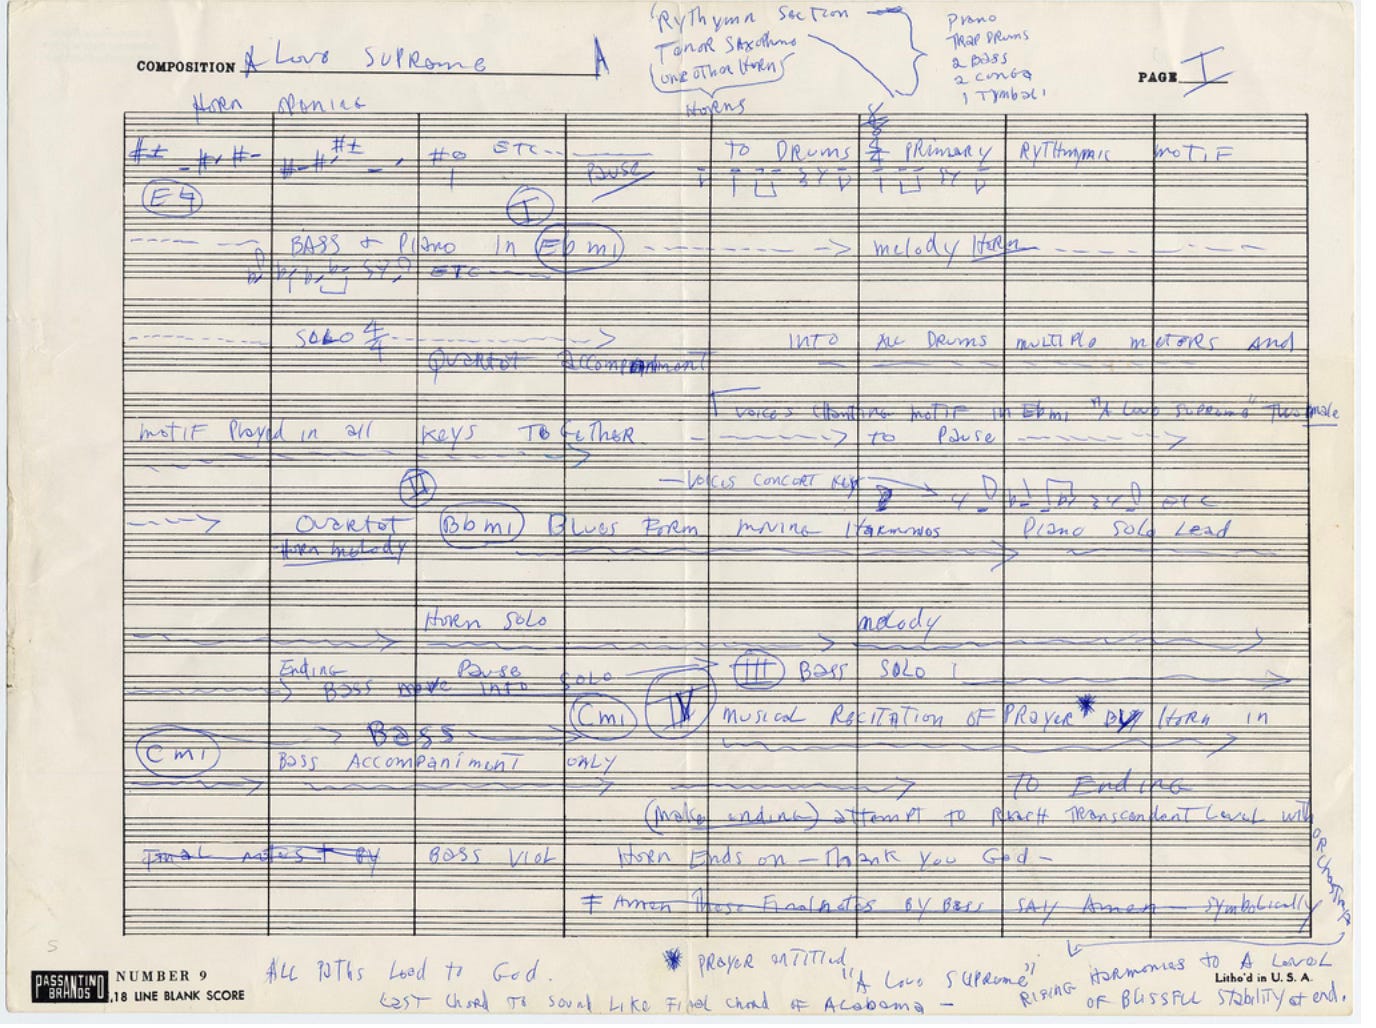 Rythymn Section
Tenor Saxophone
(one other Horn)
Horns
Piano
TRAP DRUMS
2 BASS
2 Conga
1 Tymbali
COMPOSITION A Love Supreme A
PAGE I
Horn opening
ETC
Pause
TO DRUMS 4/4 PRIMARY RYTHYMIC MOTIF
E♮
I
BASS + PIANO IN Eb mi melody Horn
ETC
SOLO 4/4
INTO ALL DRUMS MULTIPLE METERS and
Quartet Accompaniment
VOICES CHANTING MOTIF IN Eb mi "A Love Supreme" Two male
MOTIF Played in all Keys TOGETHER to Pause
II
VOICES CONCERT KEY
ETC
Quartet Bb mi Blues Form moving Harmonies Piano Solo Lead
Horn melody
Horn Solo melody
Ending Pause
Bass move into Solo
III Bass Solo 1
C mi IV MUSICAL RECITATION OF PRAYER * BY HORN in
Bass
C mi Bass Accompaniment ONLY
TO Ending
(make ending) attempt to Reach Transcendent Level with ORCHESTRA
Final notes + BY BASS VIOL Horn Ends on – Thank you God –
Amen These Final notes BY Bass SAY Amen – symbolically
* PRAYER entitled
"A Love Supreme"
RISING Harmonies to A Level
OF BLISSFUL Stability at end.
ALL PATHS Lead to God.
Last Chord to sound Like Final chord of Alabama –
S
PASSANTINO
BRANDS
NUMBER 9
18 LINE BLANK SCORE
Litho'd in U. S. A.